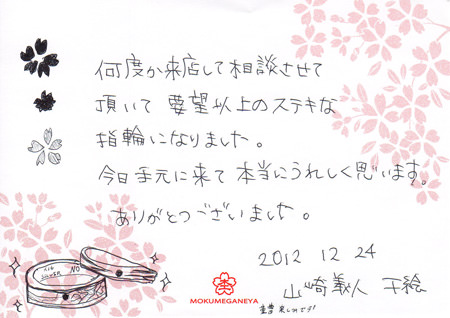 何度か来店して相談させて
頂いて 要望以上のステキな
指輪になりました。
今日手元に来て 本当にうれしく思います。
ありがとうございました。
2012 12 24
山崎義人 千絵
MOKUMEGANEYA